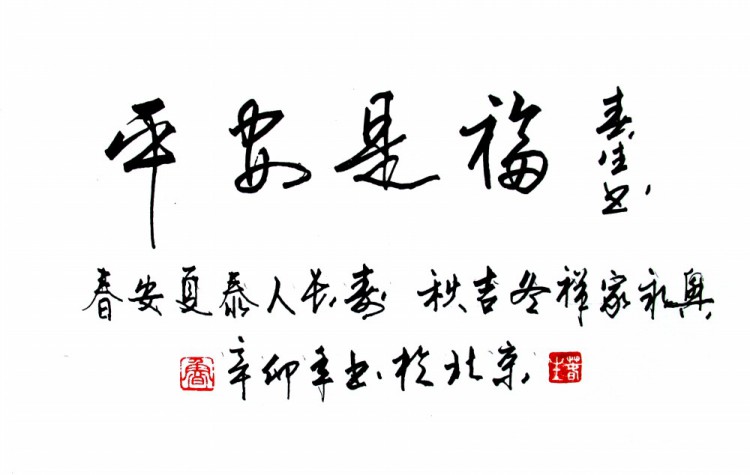 平安是福
春生书
春安夏泰人长寿 秋吉冬祥家永兴
辛卯年书于北京